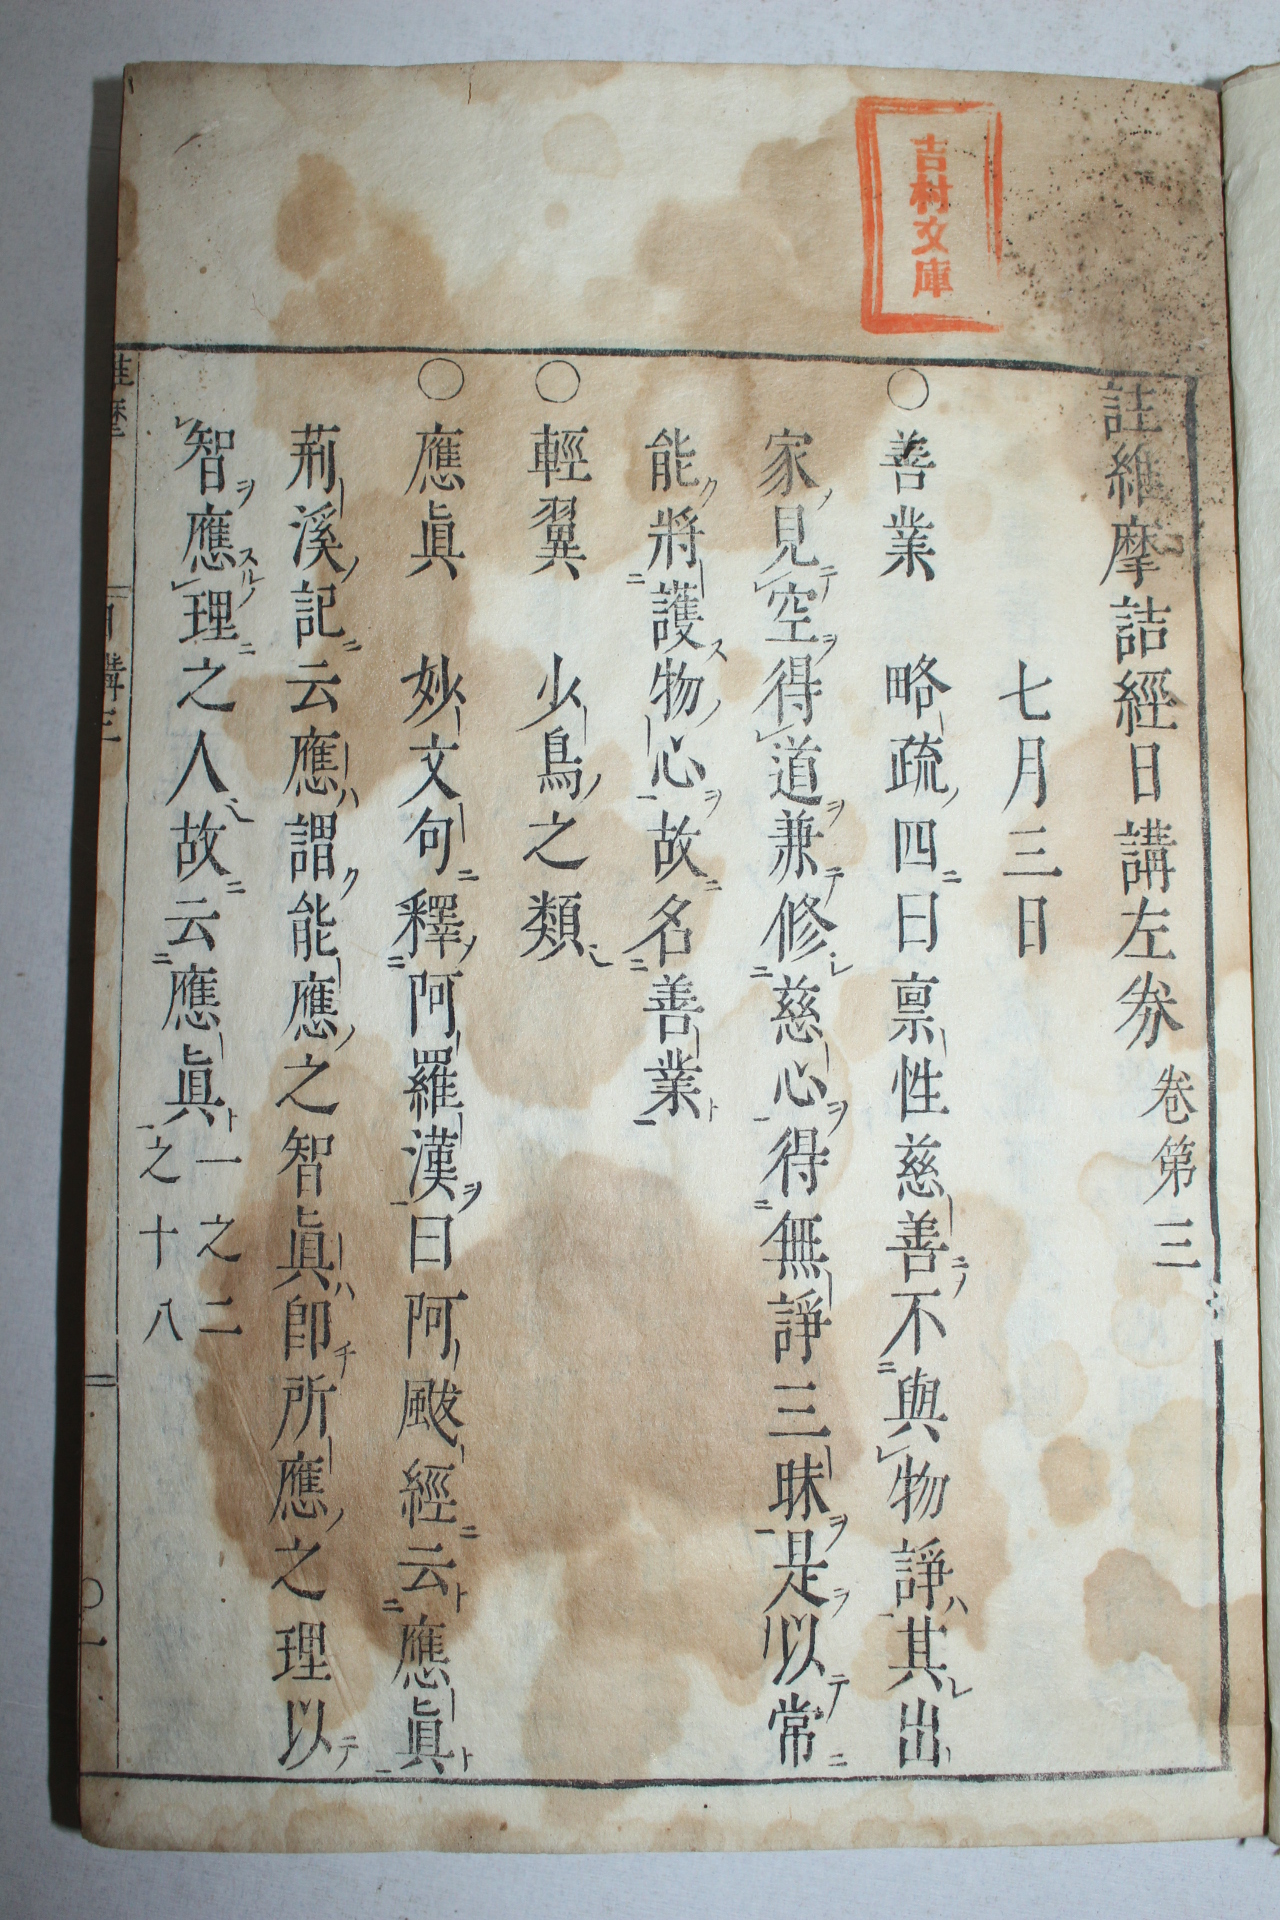 吉村文庫
註維摩詰經日講左券卷第三
七月三日
○善業 略疏四曰禀性慈善不與物諍其出
家見空得道兼修慈心得無諍三昧是以常
能將護物心故名善業
○輕翼 少鳥之類
○應眞 妙文句釋阿羅漢曰阿颰經云應眞
荊溪記云應謂能應之智眞卽所應之理以
智應理之人故云應眞一之二之十八